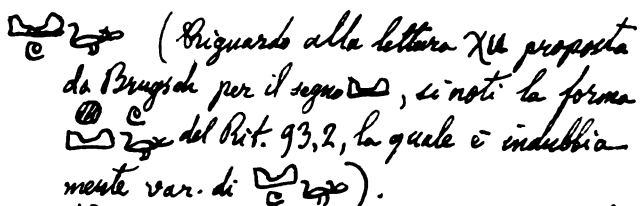 (Riguardo alla lettura χu proposta
da Brugsch per il segno, si noti la forma
del Rit. 93,2, la quale è indubbia-
mente var. di ).